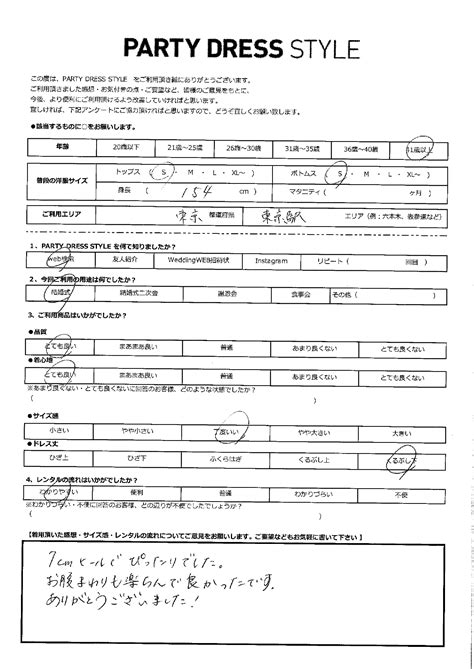 PARTY DRESS STYLE
この度は、PARTY DRESS STYLE をご利用頂き誠にありがとうございます。
ご利用頂きました感想・お気付きの点・ご要望など、皆様のご意見をもとに、
今後、より便利にご利用頂けるよう改善していければと思います。
宜しければ、下記アンケートにご協力頂ければと思いますので、どうぞ宜しくお願い致します。
●該当するものに○をお願いします。
年齢 20歳以下 21歳～25歳 26歳～30歳 31歳～35歳 36歳～40歳 41歳以上
普段の洋服サイズ トップス ( S ・ M ・ L ・ XL～ ) ボトムス ( S ・ M ・ L ・ XL～ )
身長 ( 154 cm ) マタニティ ( ヶ月 )
ご利用エリア 東京 都道府県 東京駅 エリア（例：六本木、表参道など）
1、PARTY DRESS STYLE を何で知りましたか？
web検索 友人紹介 WeddingWEB招待状 Instagram リピート ( 回目 )
2、今回ご利用の用途は何でしたか？
結婚式 結婚式二次会 謝恩会 食事会 その他 ( )
3、ご利用商品はいかがでしたか？
●品質
とても良い まあまあ良い 普通 あまり良くない とても良くない
●着心地
とても良い まあまあ良い 普通 あまり良くない とても良くない
※あまり良くない・とても良くないに回答のお客様、どのような状態でしたか？
( )
●サイズ感
小さい やや小さい 丁度いい やや大きい 大きい
●ドレス丈
ひざ上 ひざ下 ふくらはぎ くるぶし上 くるぶし下
4、レンタルの流れはいかがでしたか？
わかりやすい 便利 普通 わかりづらい 不便
※わかりづらい・不便に回答のお客様、どの辺りが不便でしたでしょうか？
( )
【着用頂いた感想・サイズ感・レンタルの流れについてご意見をお願いします。ご要望などもお気軽に書いて下さい】
7cmヒールでぴったりでした。
お腹まわりも楽ちんで良かったです。
ありがとうございました！